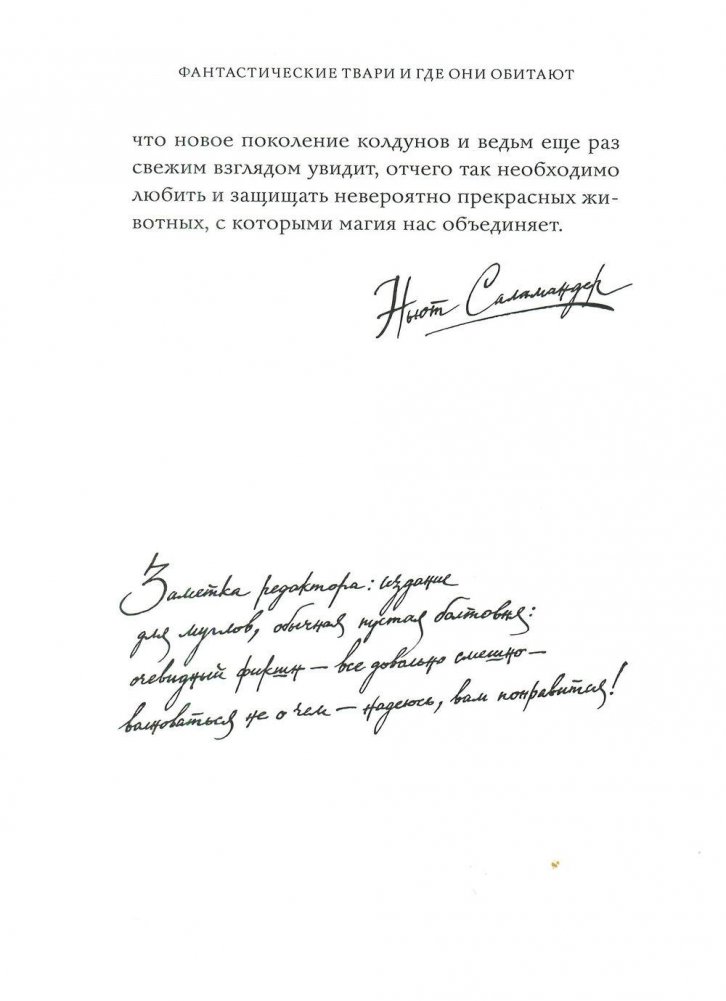 ФАНТАСТИЧЕСКИЕ ТВАРИ И ГДЕ ОНИ ОБИТАЮТ
что новое поколение колдунов и ведьм еще раз
свежим взглядом увидит, отчего так необходимо
любить и защищать невероятно прекрасных жи-
вотных, с которыми магия нас объединяет.
Ньют Саламандер
Заметка редактора: издание
для муглов, обычная пустая болтовня:
очевидный фикшн — все довольно смешно —
волноваться не о чем — надеюсь, вам понравится!